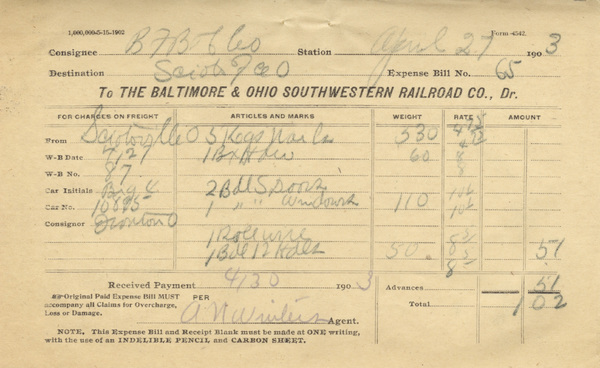 1,000,000-5-15-1902 Form 4542.
Consignee B F Station April 27 1903
Destination Expense Bill No. 65
To THE BALTIMORE & OHIO SOUTHWESTERN RAILROAD CO., Dr.
FOR CHARGES ON FREIGHT ARTICLES AND MARKS WEIGHT RATE AMOUNT
From O 5 Kegs Nails 530
W-B Date 4/27 1 Bx Hdw 60
W-B No. 87
Car Initials Big 4 2 Bdl Doors
Car No. 1 " " Windows 110
Consignor Ironton O
1 Roll
1 Bdl 50. 51
Received Payment 4/30 1903 Advances 51
Original Paid Expense Bill MUST PER Total 1 02
accompany all Claims for Overcharge,
Loss or Damage. Agent.
NOTE. This Expense Bill and Receipt Blank must be made at ONE writing,
with the use of an INDELIBLE PENCIL and CARBON SHEET.